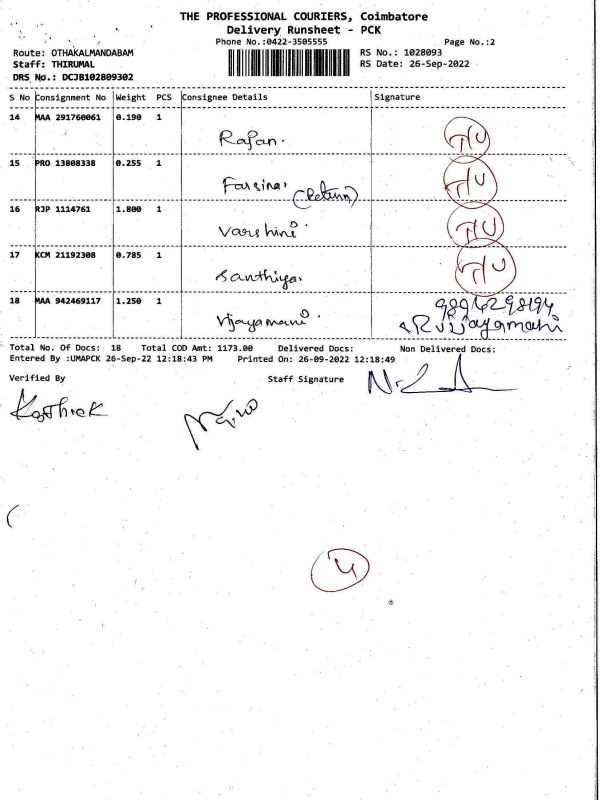 THE PROFESSIONAL COURIERS, Coimbatore
Delivery Runsheet - PCK
Phone No.:0422-3505555 Page No.:2
Route: OTHAKALMANDABAM RS No.: 1028093
Staff: THIRUMAL RS Date: 26-Sep-2022
DRS No.: DCJB102809302
S No Consignment No Weight PCS Consignee Details Signature
14 MAA 291760061 0.190 1
Rajan.
15 PRO 13808338 0.255 1
Farsina.
(Return)
16 RJP 1114761 1.800 1
Varshini
17 KCM 21192308 0.785 1
Santhiya.
18 MAA 942469117 1.250 1
9894298194
Vijayamani. R Vijayamani
Total No. Of Docs: 18 Total COD Amt: 1173.00 Delivered Docs: Non Delivered Docs:
Entered By :UMAPCK 26-Sep-22 12:18:43 PM Printed On: 26-09-2022 12:18:49
Verified By Staff Signature
Karthick
4